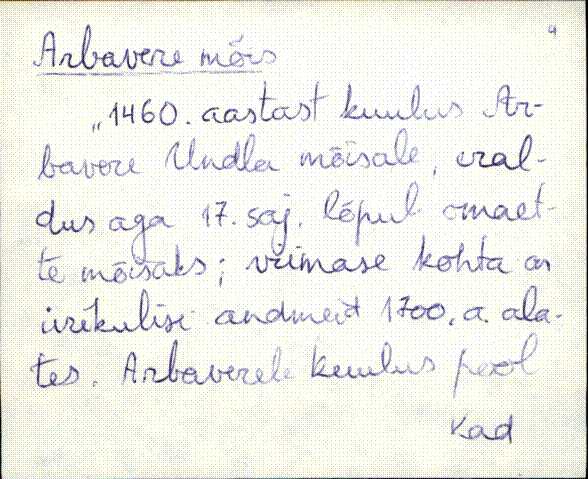 4
Arbavere mõis
„1460. aastast kuulus Ar-
bavere Undla mõisale, eral-
dus aga 17. saj. lõpul omaet-
te mõisaks; viimase kohta on
ürikulisi andmeid 1700. a. ala-
tes. Arbaverele kuulus pool
Kad